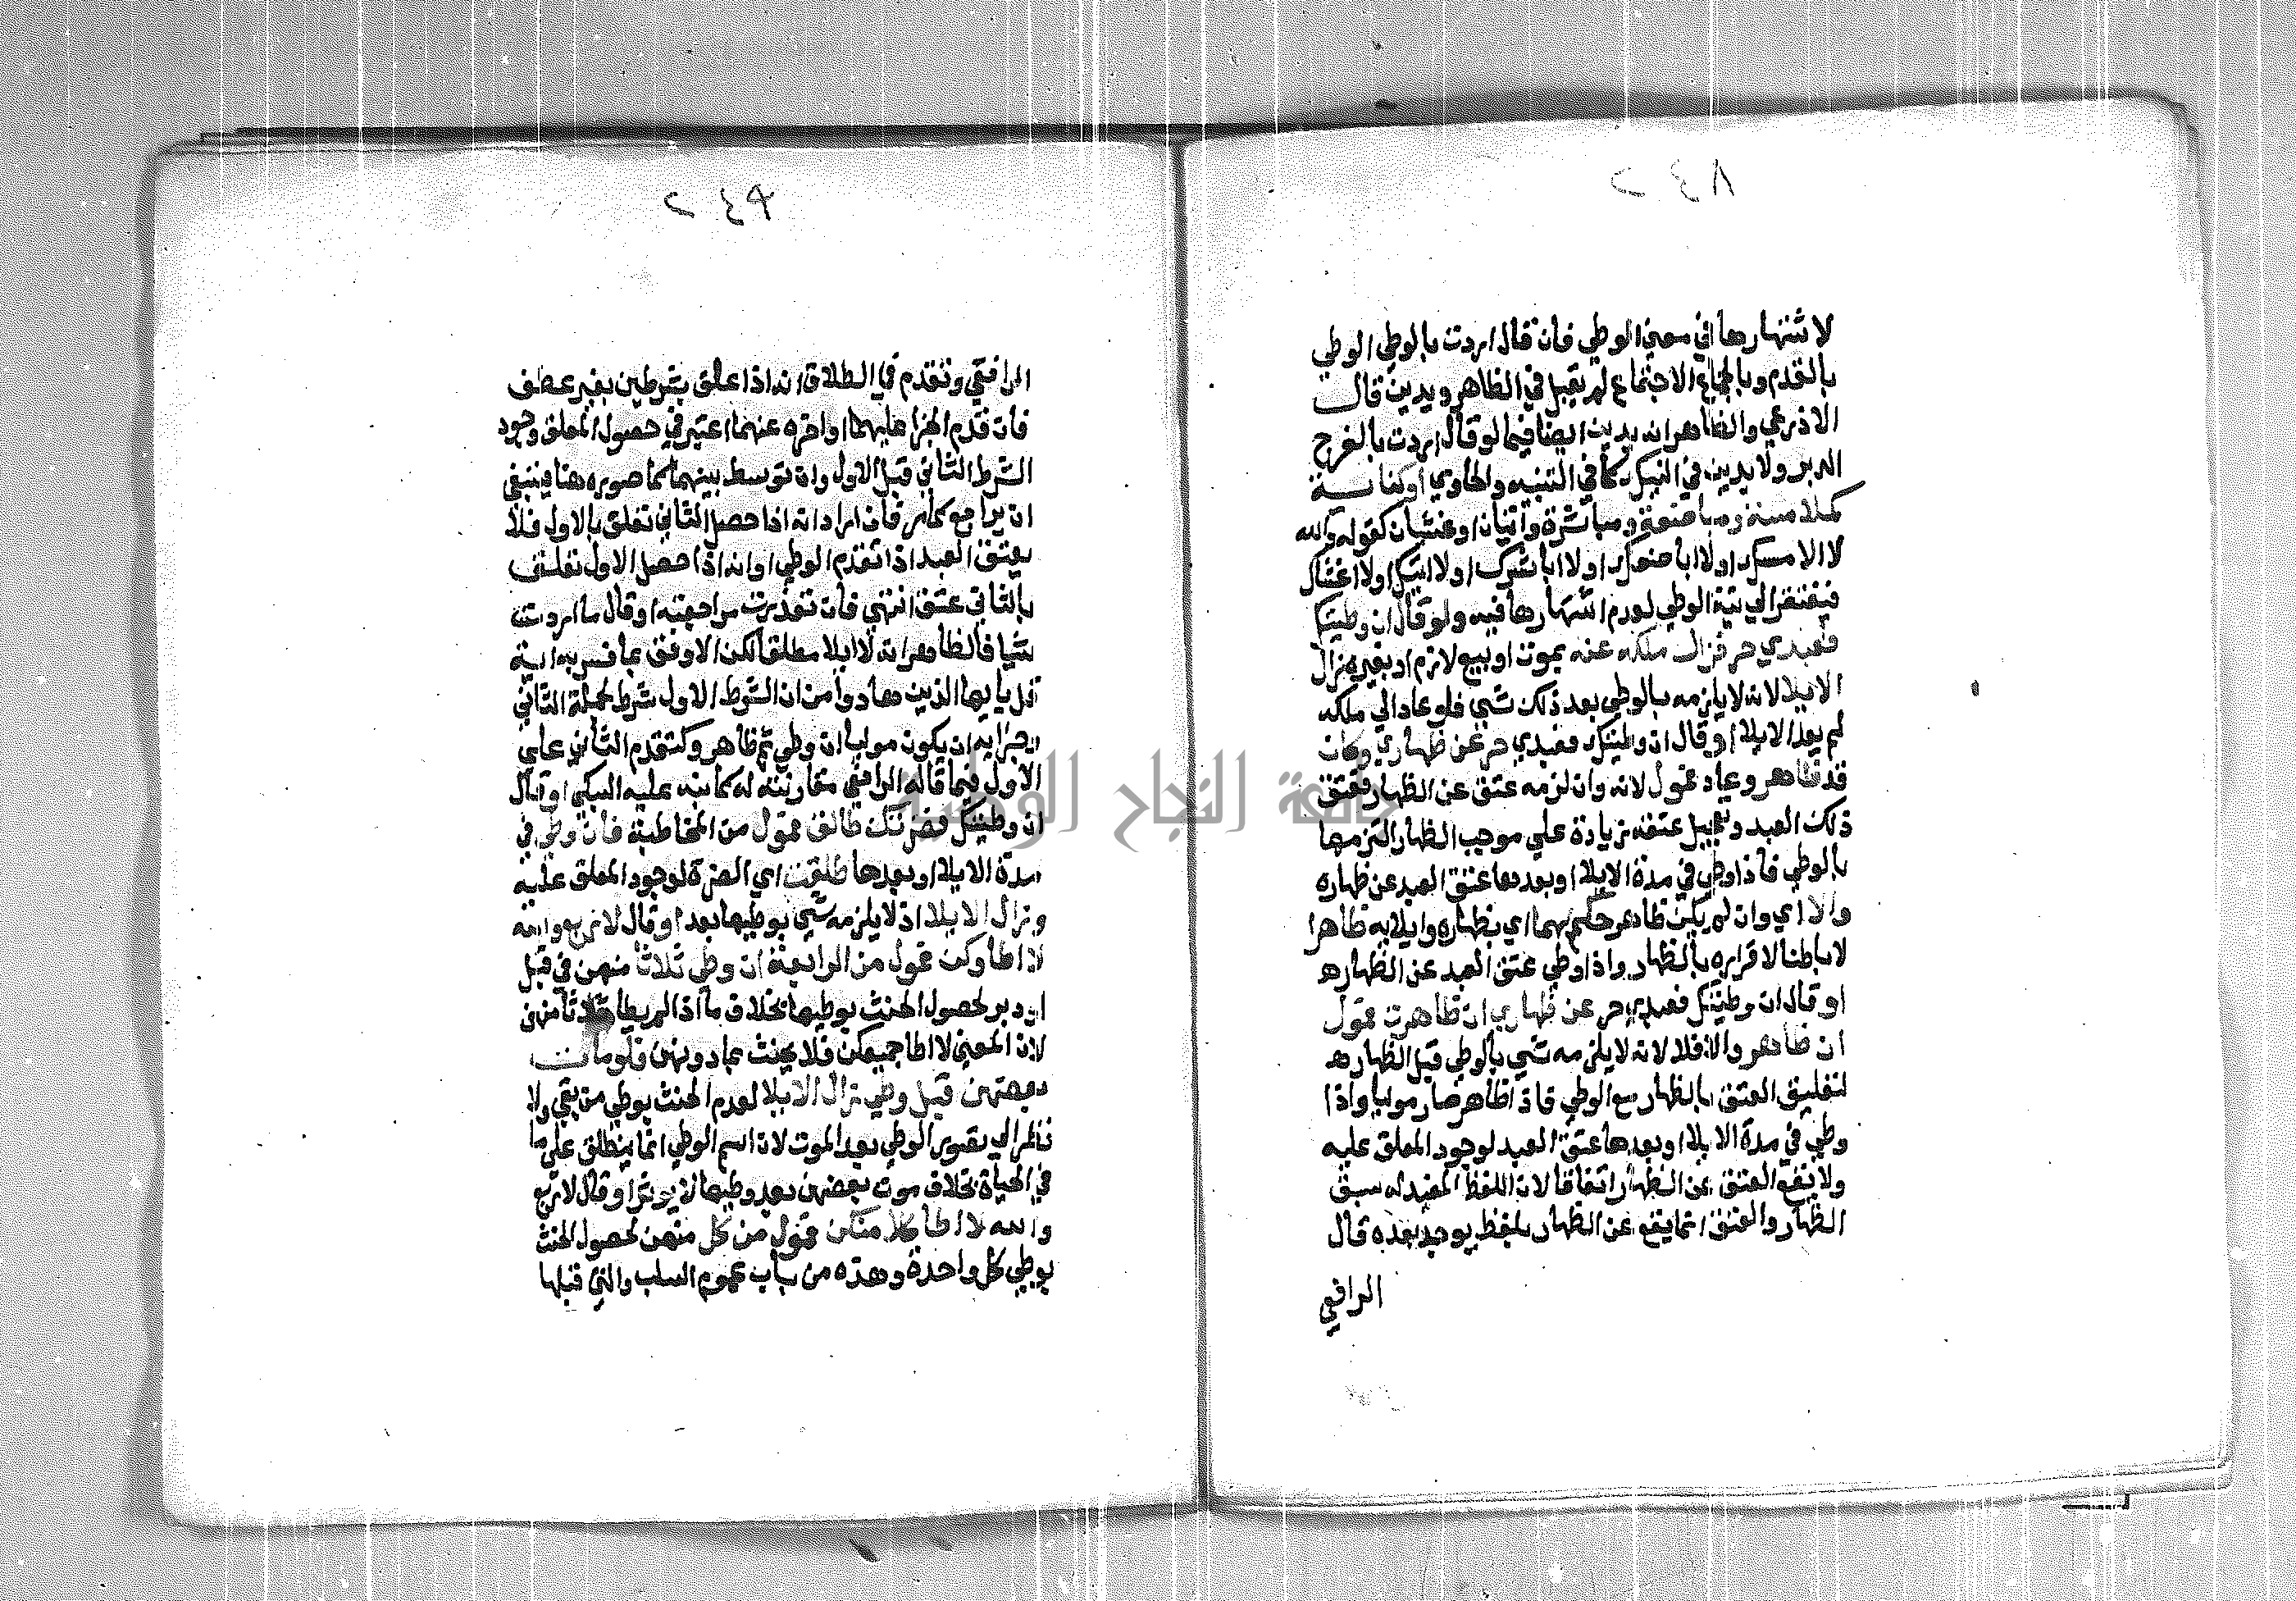 ٢٤٨
لاشتهارها في معني الوطي فان قال اردت بالوطي الوطي
بالقدم وبالجماع الاجتماع لم يقبل في الظاهر ويدين قال
الاذرعي والظاهر انه يدين ايضا فيما لو قال اردت بالفرج
الدبر ولا يدين في النيك كما في التنبيه والحاوي او كناية
كملامسة ومباضعة ومباشرة واتيان وغشيان كقوله والله
لا الامسك او لا اباضعك او لا اباشرك او لا اتيك او لا اغشاك
فيفتقر الي نية الوطي لعدم اشتهارها فيه ولو قال ان وطيتك
فعبدي حر فزال ملكه عنه بموت او ببيع لازم او بغيره زال
الايلا لانه لا يلزمه بالوطي بعد ذلك شي فلو عاد الي ملكه
لم يعد الايلا او قال ان وطيتك فعبدي حر عن ظهاري وكان
قد ظاهر وعاد فمول لانه وان لزمه عتق عن الظهار فعتق
ذلك العبد وتعجيل عتقه زيادة علي موجب الظهار التزمها
بالوطي فاذا وطي في مدة الايلا او بعدها عتق العبد عن ظهاره
والا اي وان لم يكن ظاهر حكم بهما اي بظهاره وايلايه ظاهرا
لا باطنا لاقراره بالظهار واذا وطي عتق العبد عن الظهار ه
او قال ان وطيتك فعبدي حر عن ظهاري ان ظاهرت فمول
ان ظاهر والا فلا لانه لا يلزمه شي بالوطي قبل الظهار ه
لتعليق العتق بالظهار مع الوطي فاذا ظاهر صار موليا واذا
وطي في مدة الايلا او بعدها عتق العبد لوجود المعلق عليه
ولا يقع العتق عن الظهار اتفاقا لان اللفظ المفيد له سبق
الظهار والعتق انما يقع عن الظهار بلفظ يوجد بعده قال
الرافعي
٢٤٩
الرافعي وتقدم في الطلاق انه اذا علق بشرطين بغير عطف
فان قدم الجزا عليهما او اخره عنهما اعتبر في حصول المعلق وجود
الشرط الثاني قبل الاول وان توسط بينهما كما صوره هنا فينبغي
ان يراجع كما مر فان اراد انه اذا حصل الثاني تعلق بالاول فلا
يعتق العبد اذا تقدم الوطي او انه اذا حصل الاول تعلق
بالثاني عتق انتهي فان تعذرت مراجعته او قال ما اردت
شيا فالظاهر انه لا ايلا مطلقا لكن الاوفق بما فسر به اية
قل يا ايها الذين هادوا من ان الشرط الاول شرط لجملة الثاني
وجزايه ان يكون موليا ان وطي ثم ظاهر وكتقدم الثاني علي
الاول فيما قاله الرافعي مقارنته له كما نبه عليه السبكي او قال
ان وطيتك فضرتك طالق فمول من المخاطبة فان وطي في
مدة الايلا او بعدها طلقت اي الضرة لوجود المعلق عليه
وزال الايلا اذ لا يلزمه شي بوطيها بعد او قال لاربع والله
لا اطاوكن فمول من الرابعة ان وطي ثلاثا منهن في قبل
او دبر لحصول الحنث بوطيها بخلاف ما اذا لم يطا ثلاثا منهن
لان المعني لا اطا جميعكن فلا يحنث بما دونهن فلو مات
بعضهن قبل وطي زال الايلا لعدم الحنث بوطي من بقي ولا
نظر الي تصور الوطي بعد الموت لان اسم الوطي انما ينطلق علي ما
في الحياة بخلاف موت بعضهن بعد وطيها لا يوثر او قال لاربع
والله لا اطا كلا منكن فمول من كل منهن لحصول الحنث
بوطي كل واحدة وهذه من باب عموم السلب والتي قبلها
جامعة النجاح الوطنية